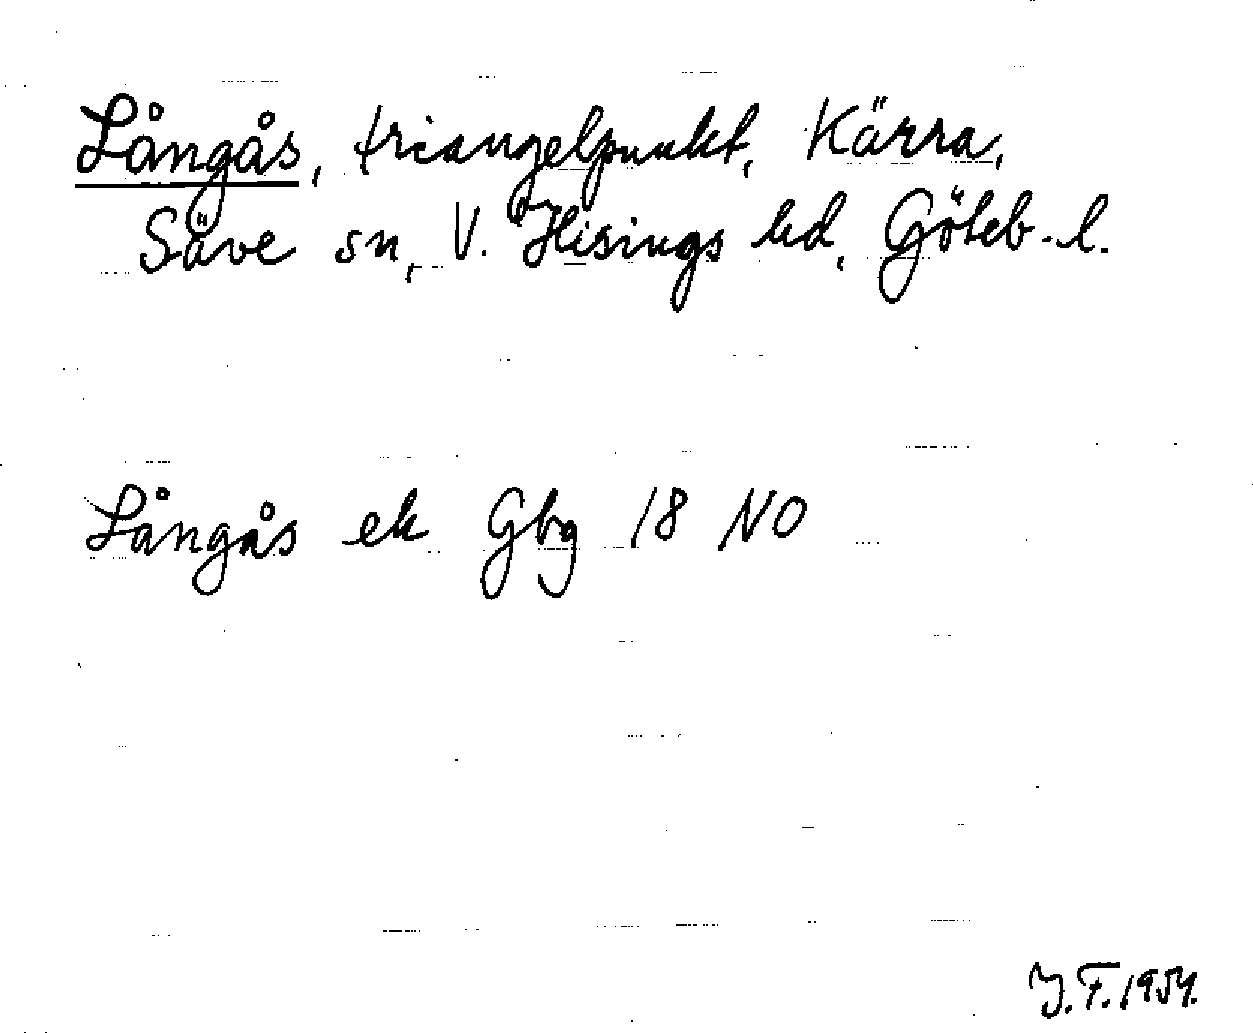 Långås, triangelpunkt, Kärra,
Säve sn, V. Hisings hd, Göteb.l.
Långås ek Gbg 18 NO
Y.F. 1954.